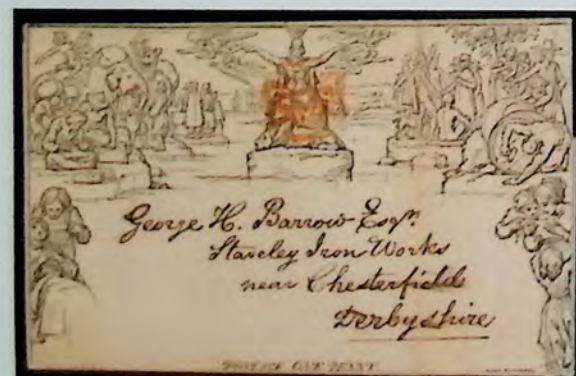 George H. Barrow Esqr.
Staveley Iron Works
near Chesterfield
Derbyshire
POSTAGE ONE PENNY.